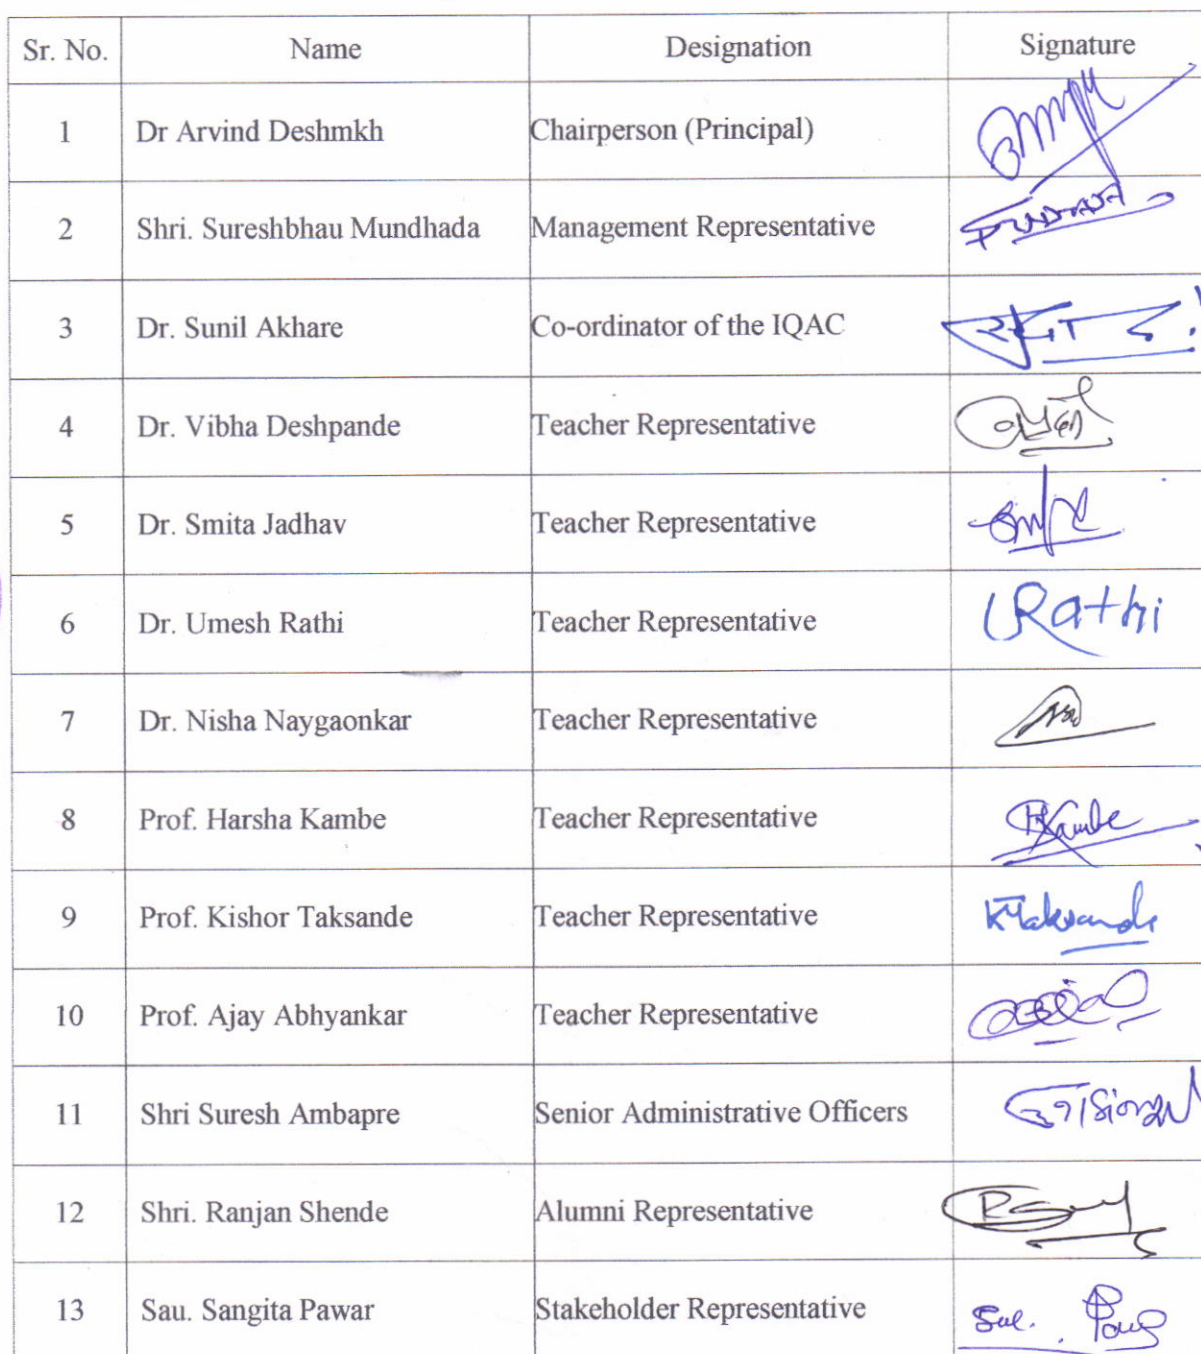 Sr. No. Name Designation Signature
1 Dr Arvind Deshmkh Chairperson (Principal)
2 Shri. Sureshbhau Mundhada Management Representative
3 Dr. Sunil Akhare Co-ordinator of the IQAC
4 Dr. Vibha Deshpande Teacher Representative
5 Dr. Smita Jadhav Teacher Representative
6 Dr. Umesh Rathi Teacher Representative Rathi
7 Dr. Nisha Naygaonkar Teacher Representative
8 Prof. Harsha Kambe Teacher Representative HKambe
9 Prof. Kishor Taksande Teacher Representative
10 Prof. Ajay Abhyankar Teacher Representative
11 Shri Suresh Ambapre Senior Administrative Officers
12 Shri. Ranjan Shende Alumni Representative
13 Sau. Sangita Pawar Stakeholder Representative